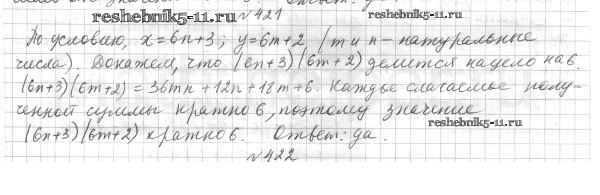 www.reshebnik5-11.ru
№421
По условию, x=6n+3; y=6m+2, (m и n - натуральные
числа). Докажем, что (6n+3)(6m+2) делится нацело на 6.
(6n+3)(6m+2) = 36mn+12n+18m+6. Каждое слагаемое полу-
ченной суммы кратно 6, поэтому значение
www.reshebnik5-11.ru
(6n+3)(6m+2) кратно 6. Ответ: да.
№422